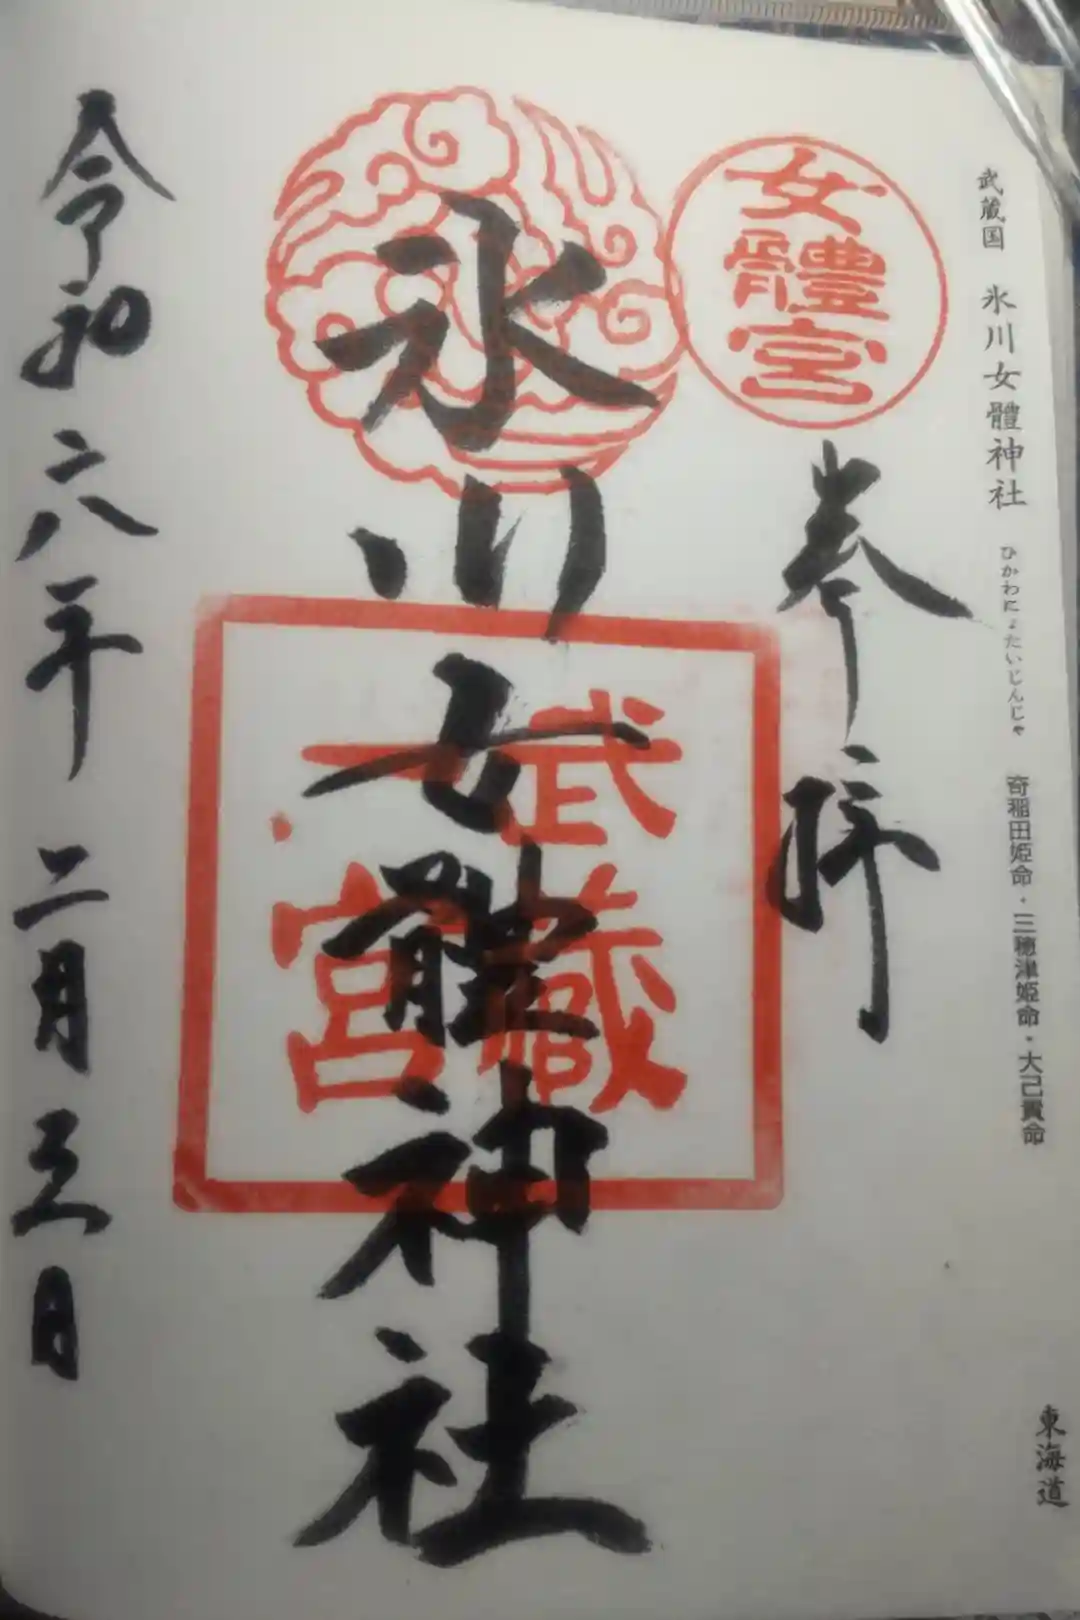 武蔵国 氷川女體神社 ひかわにょたいじんじゃ 奇稲田姫命・三穂津姫命・大己貴命
東海道
女體宮
奉拝
氷川女體神社
武蔵
一宮
令和六年二月五日